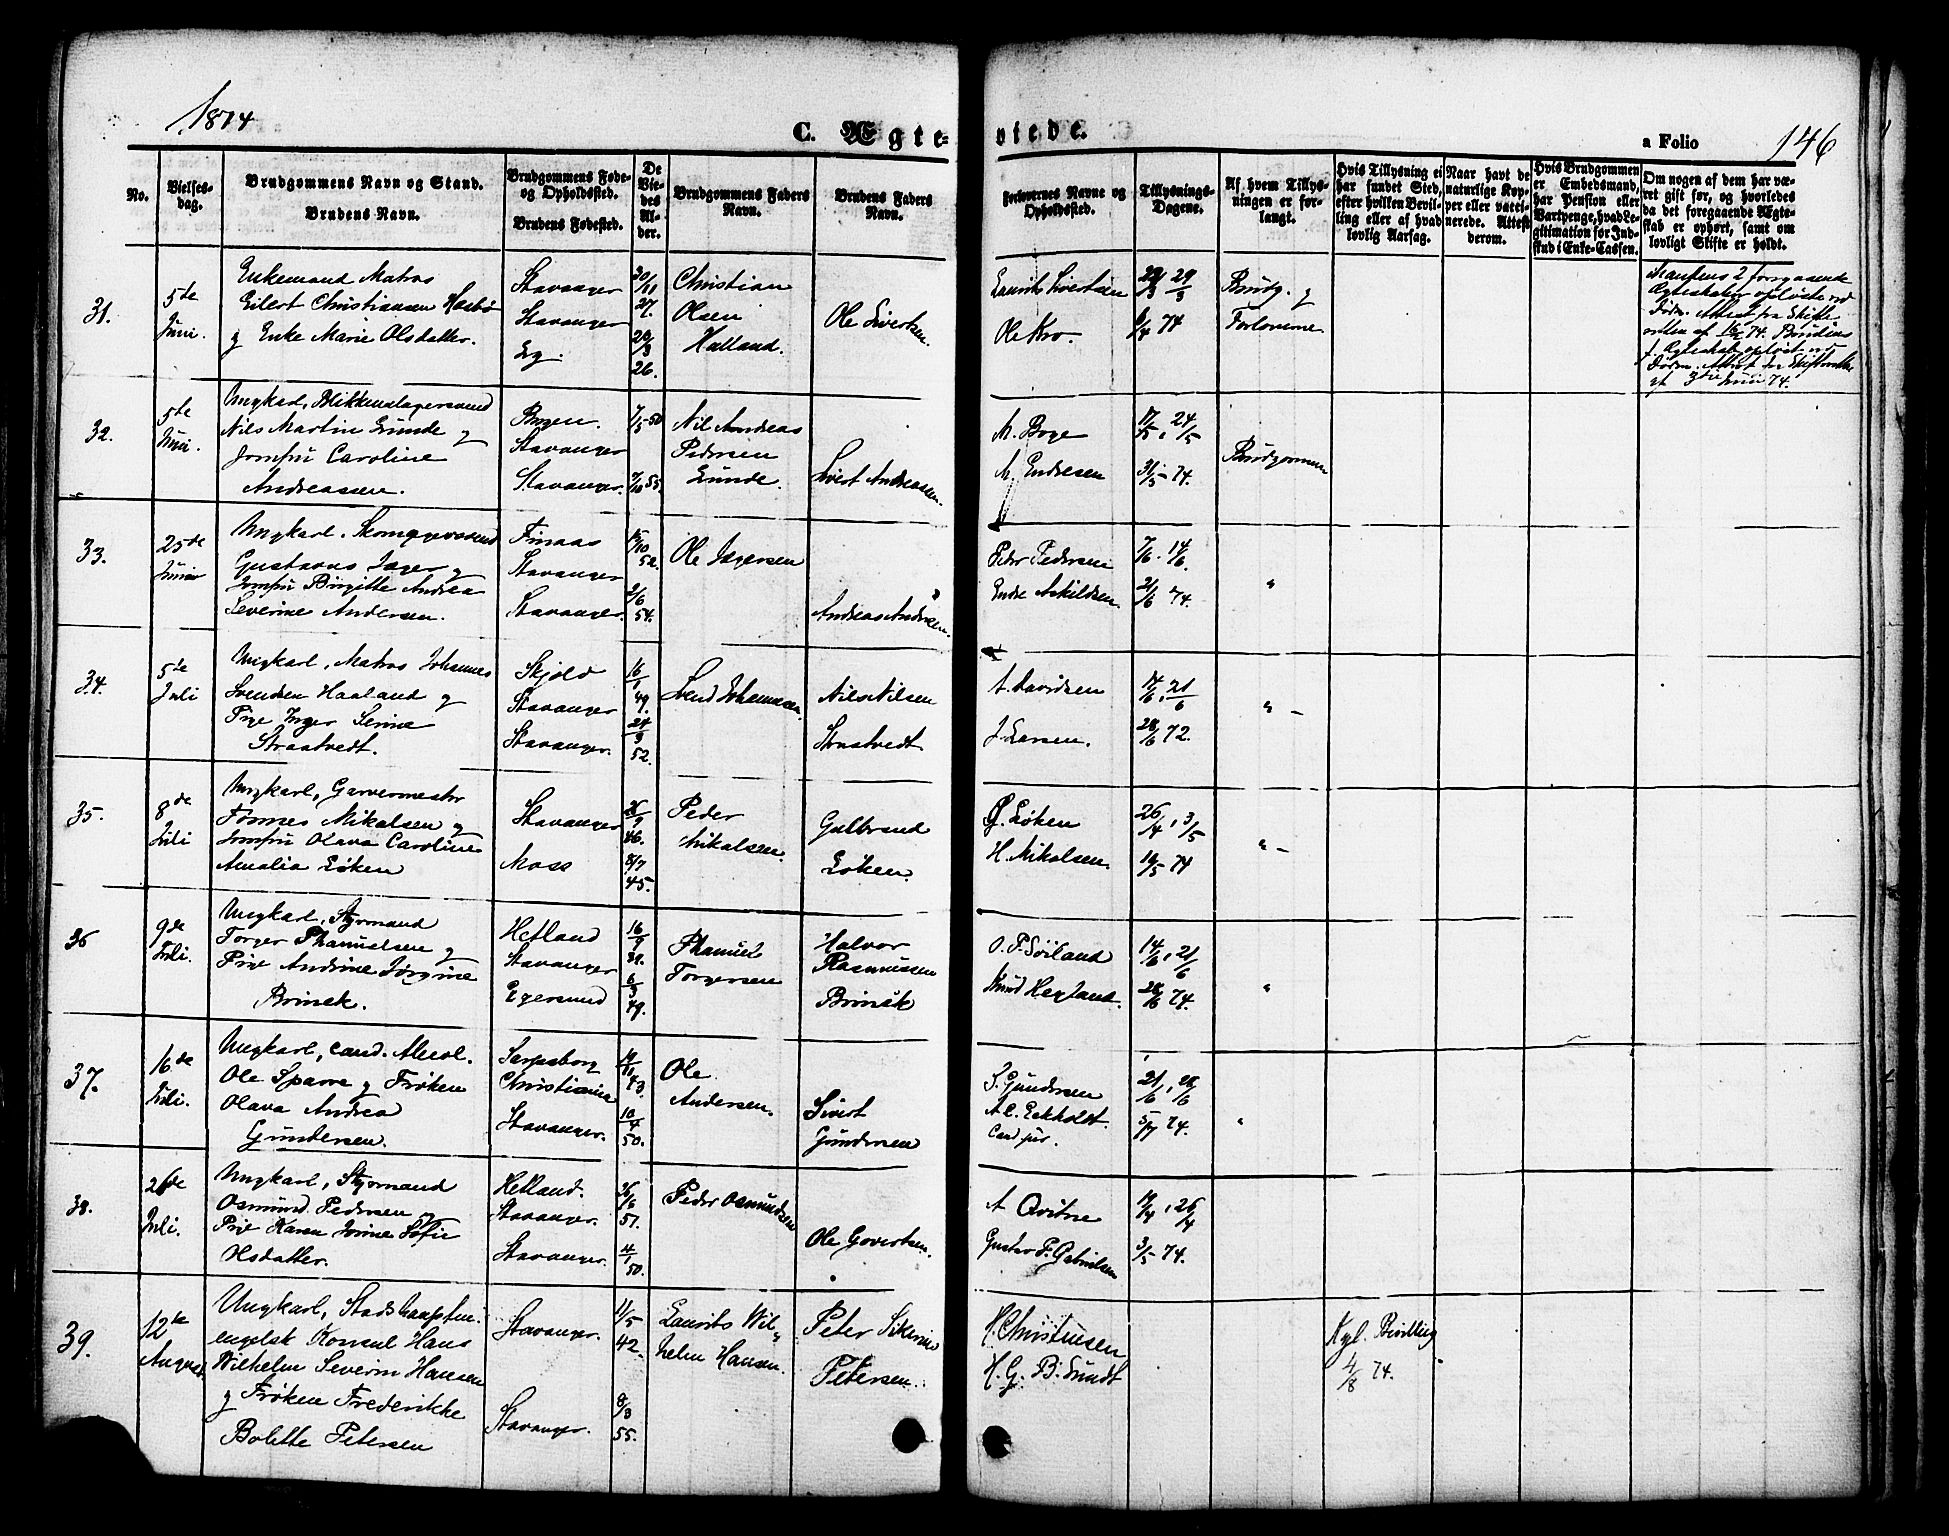 1874
C. Ægte-
viede.
a Folio 146
No.
Vielses-
dag.
Brudgommens Navn og Stand.
Brudens Navn.
Brudgommens Føde-
og Opholdssted.
Brudens Fødested.
De
Vie-
des
Al-
der.
Brudgommens Faders
Navn.
Brudens Faders
Navn.
Forlovernes Navne og
Opholdssted.
Tillysnings-
Dagene.
Af hvem Tillys-
ningen er for-
langt.
Hvis Tillysning ei
har fundet Sted,
efter hvilken Bevil-
ling eller af hvad
lovlig Aarsag.
Naar havt de
naturlige Kop-
per eller vacci-
nerede. Attest
derom.
Hvis Brudgommen
er Embedsmand,
har Pension eller
Vartpenge, hvad Le-
gitimation for Ind-
skud i Enke-Cassen.
Om nogen af dem har væ-
ret gift før, og hvorledes
da det foregaaende Ægte-
skab er ophørt, samt om
lovligt Skifte er holdt.
31.
5te
Juni.
Enkemand Matros
Eilert Christiansen
g Enke Marie Olsdatter.
Stavanger
Stavanger
Eg.
30/11
27.
20/3
26.
Christian
Olsen
Halland.
Ole Sivertsen.
Laurits Sivertsen
Ole Kro.
22/3 29/3
6/4 74
Brudg. g
Forloverne
32.
5te
Juni.
Ungkarl, Blikkenslagersvend
Nils Martin Lunde g
Jomfru Caroline
Andreassen.
Stavanger
Stavanger.
7/5 50
7/10 55.
Nil Andreas
Pedersen
Lunde.
Sivert Andreassen.
M. Boge
M. Endresen
17/5, 24/5
31/5 - 74.
Brudgommen
33.
25de
Junii
Ungkarl. Skomagersvend
Gustavus Jager g
Jomfru Birgitte Andrea
Severine Andersen.
Finaas
Stavanger
Stavanger.
15/10
52.
2/6
54.
Ole Jagersen
Andreas Andersen.
Peder Pedersen
Endre Askildsen
7/6. 14/6.
21/6 74.
"
34.
5te
Juli
Ungkarl, Matros Johannes
Svendsen Haaland g
Pige Inger Serine
Straatvedt.
Skjold
Stavanger
Stavanger.
16/1
49.
24/3
52.
Svend Johannesen.
Nils Nilsen
Straatvedt
A. Davidsen
J. Larsen.
14/6, 21/6
28/6 72.
" -
35.
8de
Juli
Ungkarl, Garvermester
Tønnes Nikalsen g
Jomfru Olava Caroline
Amalia Løken
Stavanger
Moss
26/9
46.
8/7
45.
Peder
Nikalsen.
Gulbrand
Løken.
G. Løken
H. Nikalsen.
26/4, 3/5
10/5 - 74
" -
36
9de
Juli.
Ungkarl, Styrmand
Torger Thamuelsen g
Pige Andrine Jørgine
Brinck.
Hetland
Stavanger
Egersund
16/9
6/3
49.
Torgersen
Halvor
Rasmussen
Brinck
O. P. Soiland
Knud Hegland.
14/6, 21/6
28/6 74.
"
37.
16de
Juli.
Ungkarl, cand. Theol.
Ole Sparre g Frøken
Olava Andrea
Gundersen.
Sarpsborg
Christiania
Stavanger.
43.
10/4
50.
Ole
Andersen.
Sivert
Gundersen
S. Gundersen
A C. Eckholdt.
Cand jur.
21/6, 28/6
5/7 74.
"
38.
26de
Juli.
Ungkarl, Styrmand
Osmund Pedersen g
Pige Karen Jorine Sofie
Olsdatter.
Hetland.
Stavanger.
Stavanger.
26/6
51.
4/1
50.
Peder Osmundsen
Ole Govertsen.
A Qvitne
Gustav F. Gabrielsen
19/4, 26/4
3/5 - 74.
39.
12te
August.
Ungkarl, Stadshauptm.
engelsk Konsul Hans
Wilhelm Severin Hansen
g Frøken Frederikke
Bolette Petersen
Stavanger.
Stavanger.
11/5
42.
8/3
55.
Laurits Wil-
helm Hansen.
Peter
Petersen.
H. Christensen
H. G. B. Sundt
Kgl. Bevilling
4/8 74.